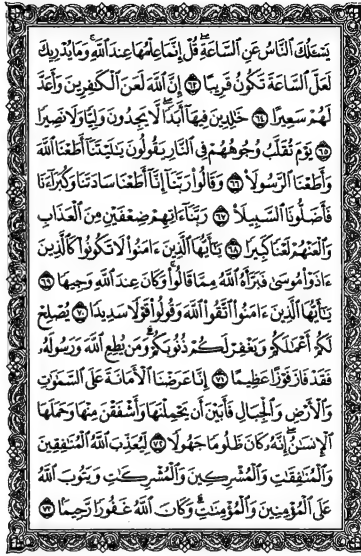 يَسْـَٔلُكَ ٱلنَّاسُ عَنِ ٱلسَّاعَةِ ۖ قُلْ إِنَّمَا عِلْمُهَا عِندَ ٱللَّهِ ۚ وَمَا يُدْرِيكَ
لَعَلَّ ٱلسَّاعَةَ تَكُونُ قَرِيبًا ٦٣ إِنَّ ٱللَّهَ لَعَنَ ٱلْكَـٰفِرِينَ وَأَعَدَّ
لَهُمْ سَعِيرًا ٦٤ خَـٰلِدِينَ فِيهَآ أَبَدًا ۖ لَّا يَجِدُونَ وَلِيًّا وَلَا نَصِيرًا
٦٥ يَوْمَ تُقَلَّبُ وُجُوهُهُمْ فِى ٱلنَّارِ يَقُولُونَ يَـٰلَيْتَنَآ أَطَعْنَا ٱللَّهَ
وَأَطَعْنَا ٱلرَّسُولَا۠ ٦٦ وَقَالُوا۟ رَبَّنَآ إِنَّآ أَطَعْنَا سَادَتَنَا وَكُبَرَآءَنَا
فَأَضَلُّونَا ٱلسَّبِيلَا۠ ٦٧ رَبَّنَآ ءَاتِهِمْ ضِعْفَيْنِ مِنَ ٱلْعَذَابِ
وَٱلْعَنْهُمْ لَعْنًا كَبِيرًا ٦٨ يَـٰٓأَيُّهَا ٱلَّذِينَ ءَامَنُوا۟ لَا تَكُونُوا۟ كَٱلَّذِينَ
ءَاذَوْا۟ مُوسَىٰ فَبَرَّأَهُ ٱللَّهُ مِمَّا قَالُوا۟ ۚ وَكَانَ عِندَ ٱللَّهِ وَجِيهًا ٦٩
يَـٰٓأَيُّهَا ٱلَّذِينَ ءَامَنُوا۟ ٱتَّقُوا۟ ٱللَّهَ وَقُولُوا۟ قَوْلًا سَدِيدًا ٧٠ يُصْلِحْ
لَكُمْ أَعْمَـٰلَكُمْ وَيَغْفِرْ لَكُمْ ذُنُوبَكُمْ ۗ وَمَن يُطِعِ ٱللَّهَ وَرَسُولَهُۥ
فَقَدْ فَازَ فَوْزًا عَظِيمًا ٧١ إِنَّا عَرَضْنَا ٱلْأَمَانَةَ عَلَى ٱلسَّمَـٰوَٰتِ
وَٱلْأَرْضِ وَٱلْجِبَالِ فَأَبَيْنَ أَن يَحْمِلْنَهَا وَأَشْفَقْنَ مِنْهَا وَحَمَلَهَا
ٱلْإِنسَـٰنُ ۖ إِنَّهُۥ كَانَ ظَلُومًا جَهُولًا ٧٢ لِّيُعَذِّبَ ٱللَّهُ ٱلْمُنَـٰفِقِينَ
وَٱلْمُنَـٰفِقَـٰتِ وَٱلْمُشْرِكِينَ وَٱلْمُشْرِكَـٰتِ وَيَتُوبَ ٱللَّهُ
عَلَى ٱلْمُؤْمِنِينَ وَٱلْمُؤْمِنَـٰتِ ۗ وَكَانَ ٱللَّهُ غَفُورًا رَّحِيمًۢا ٧٣